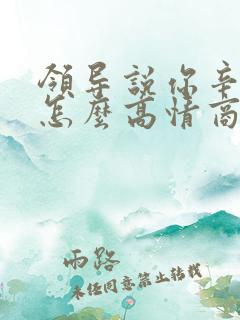 領导説你辛
怎麽高情商
雨路
未经同意禁止转载